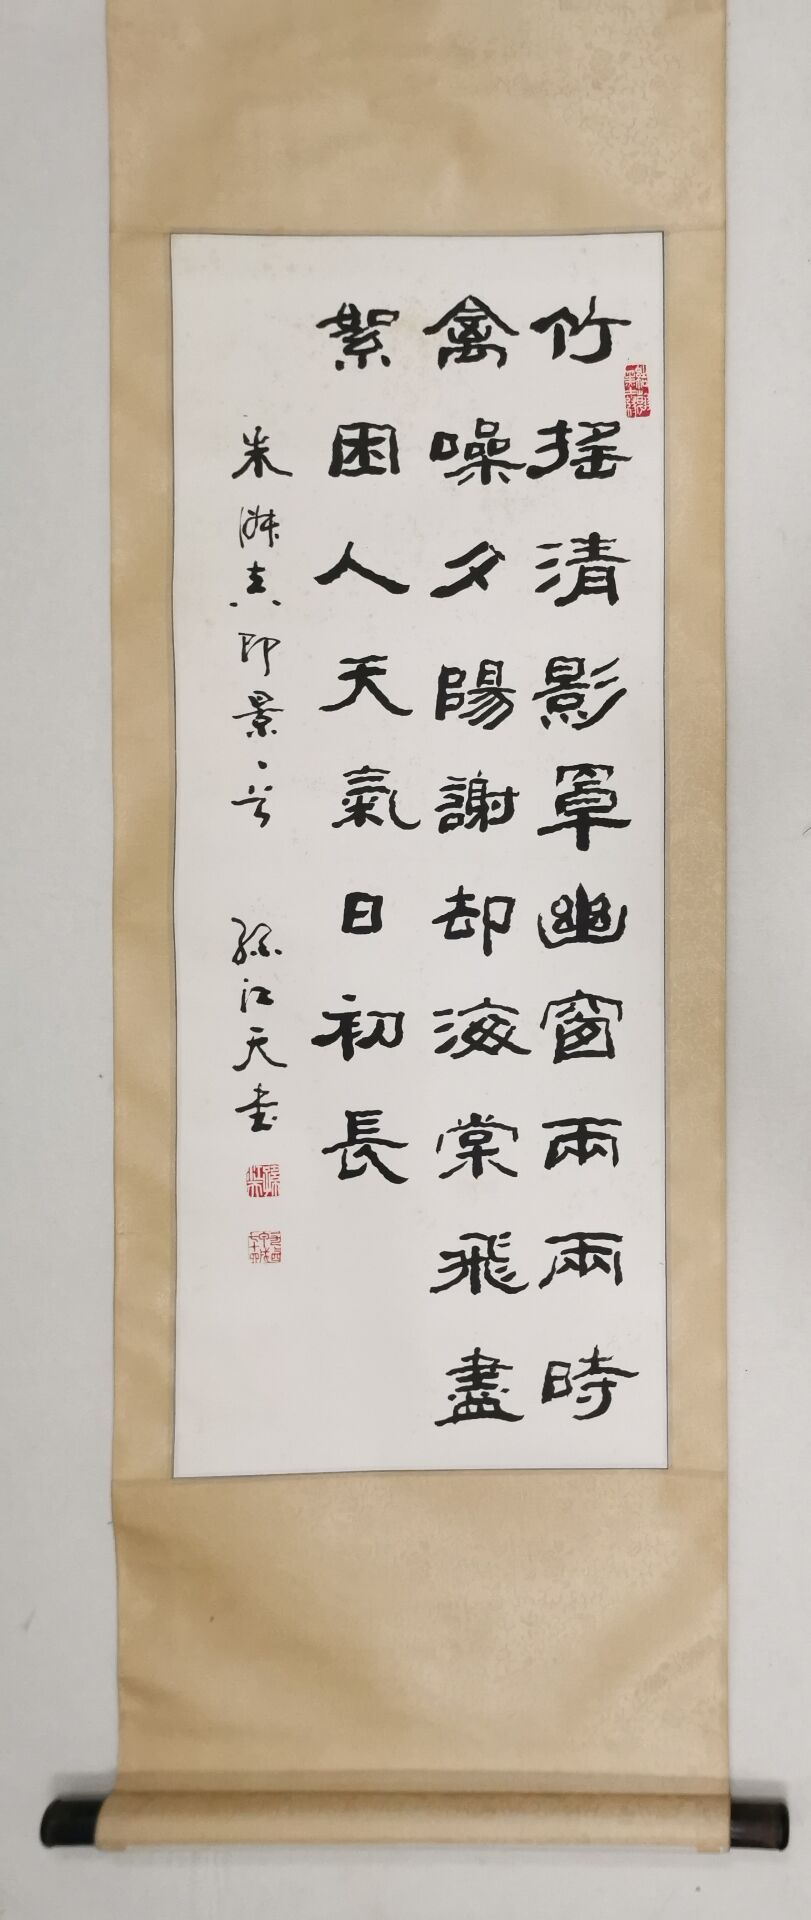 竹搖清影罩幽窗兩兩時
禽噪夕陽謝却海棠飛盡
絮困人天氣日初長
朱淑真即景一首
孫江天書